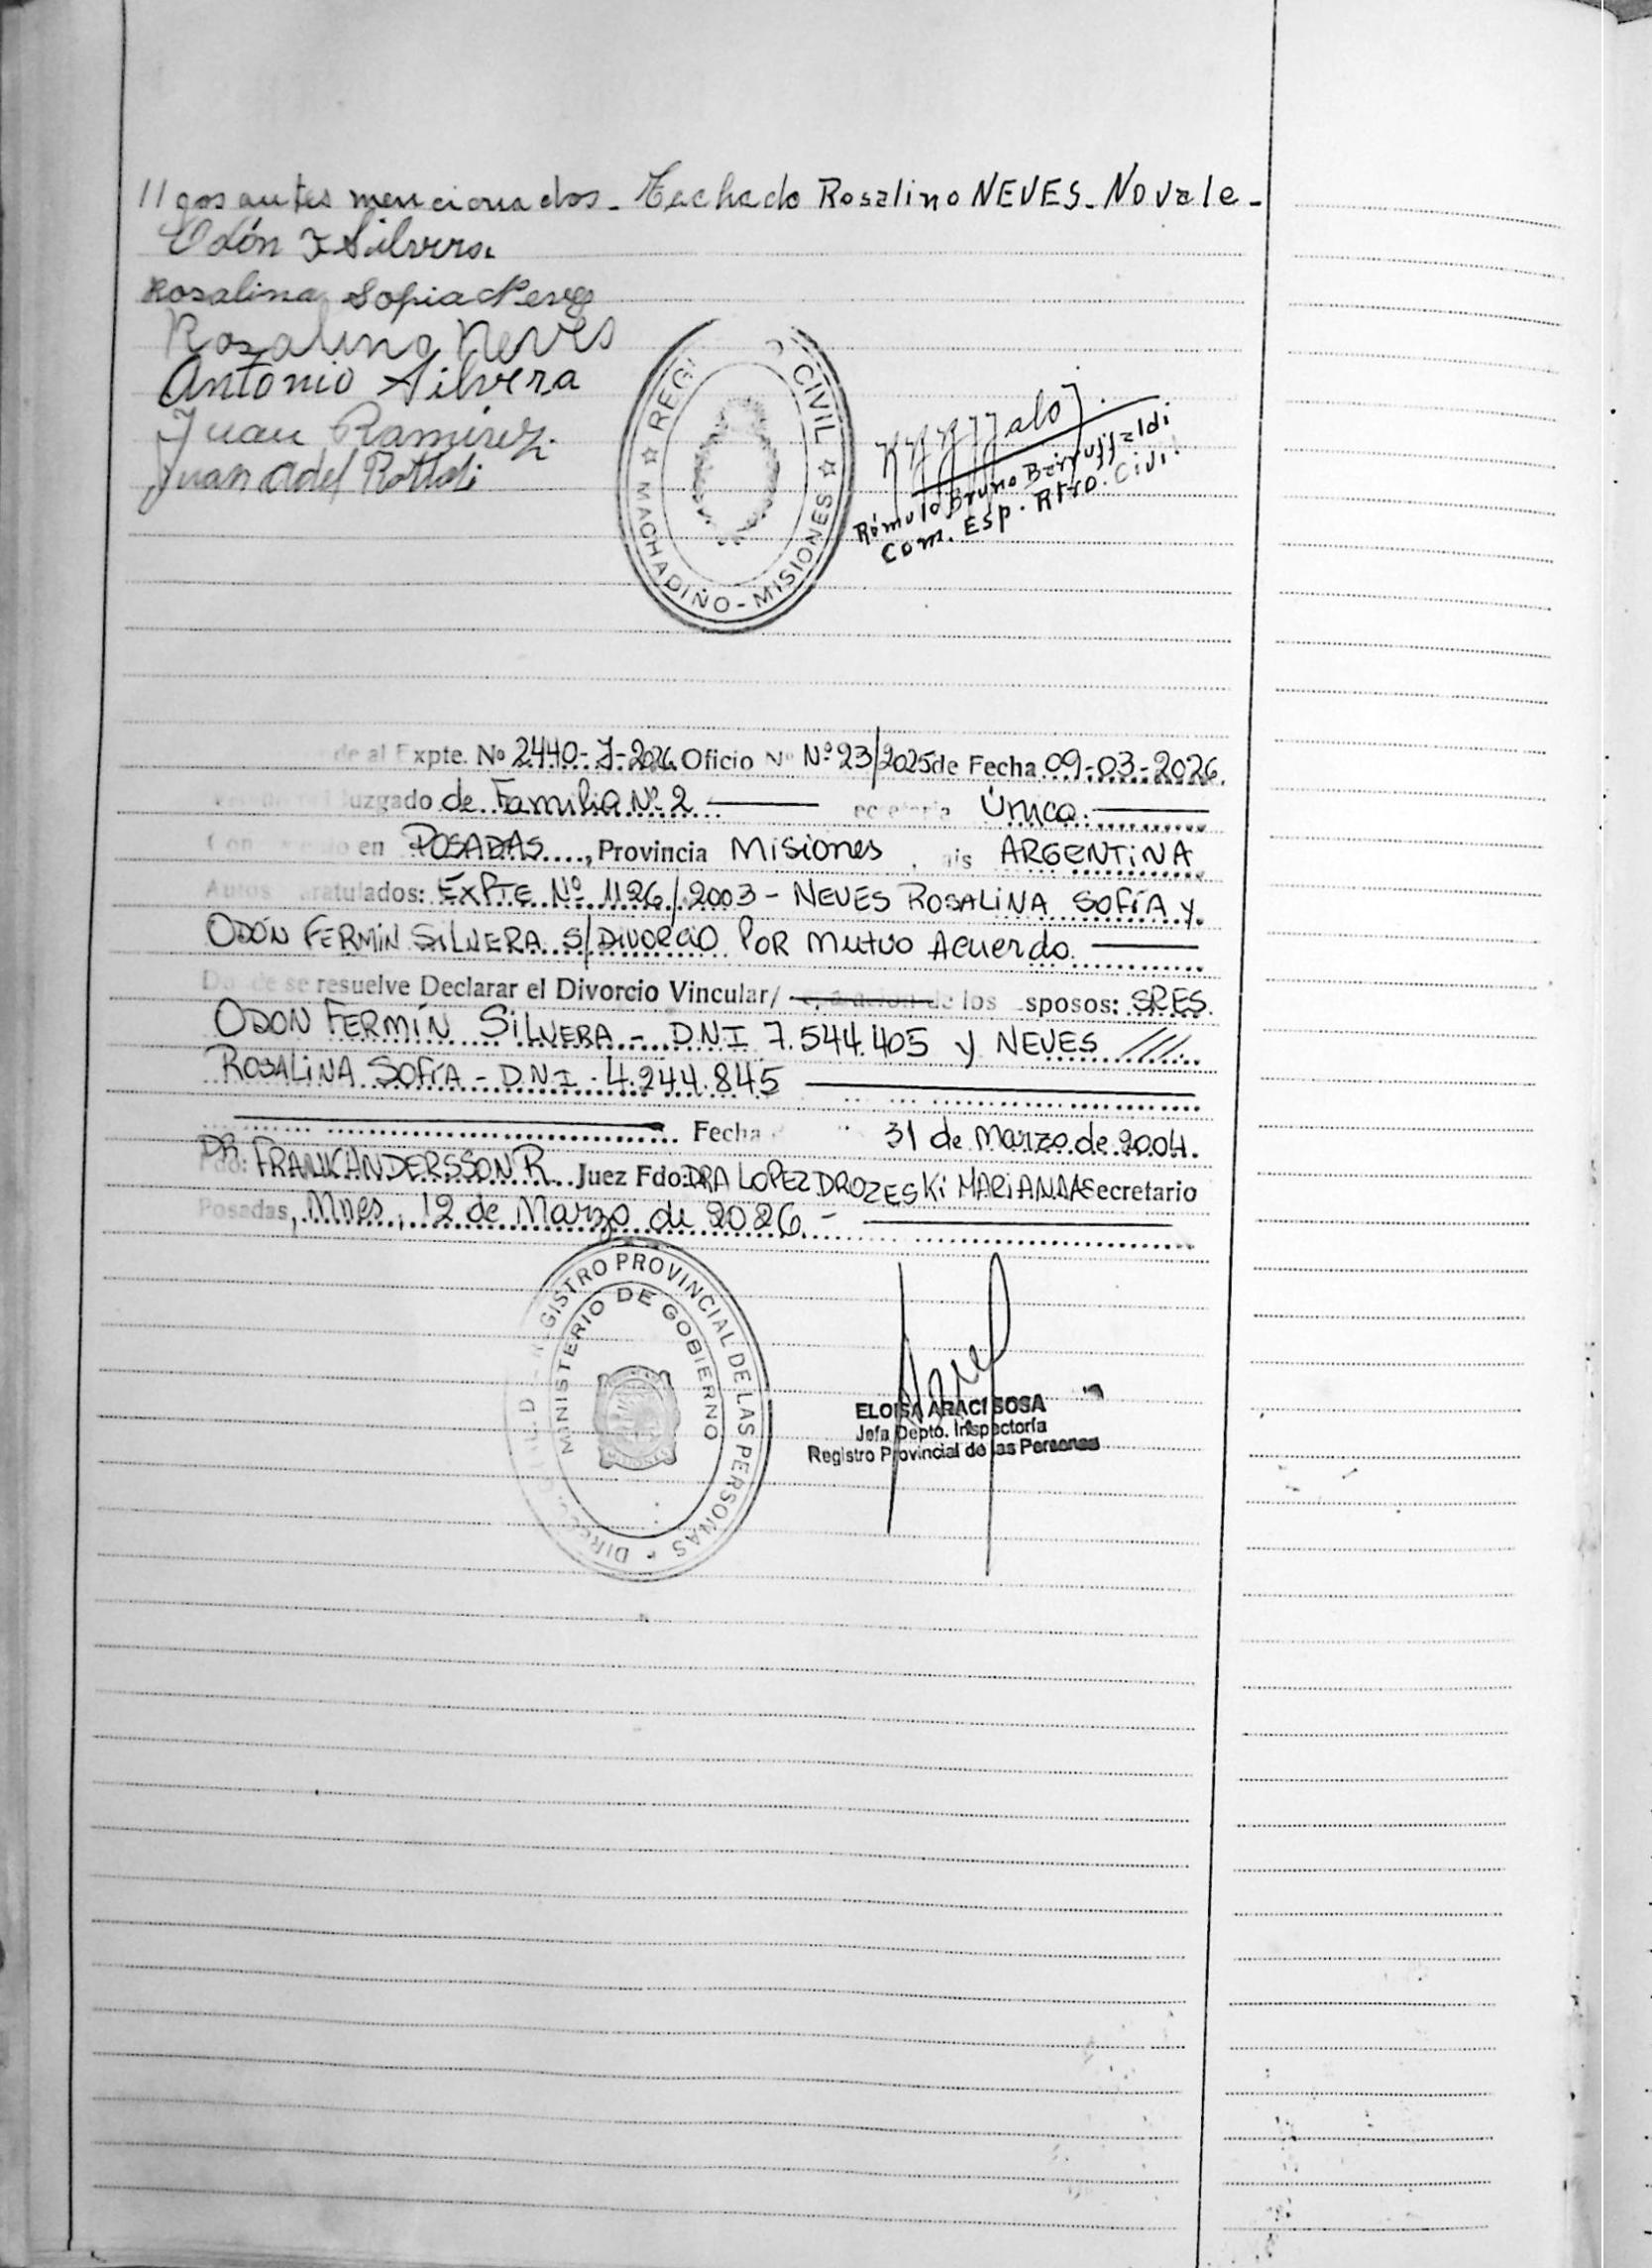 //gos antes mencionados - Tachado Rosalino NEVES - No vale -
Odón F Silvera
Rosalina Sofia Neves
Rosalino Neves
Antonio Silvera
Juan Ramirez
Juan Adel
REG O CIVIL
☆ MACHADIÑO - MISIONES ☆
Rómulo Bruno Barruffaldi
Com. Esp. Rtro. Civi.
de al Expte. Nº 2440-J-2026 Oficio Nº Nº 23/2025 de Fecha 09-03-2026.
uzgado de Familia Nº 2 Única.
en POSADAS...., Provincia Misiones, ais ARGENTINA
Autos aratulados: EXPTE Nº 1126/2003 - NEVES ROSALINA SOFÍA y
ODÓN FERMÍN SILVERA S/DIVORCIO POR MUTUO Acuerdo.
Do de se resuelve Declarar el Divorcio Vincular/ de los sposos: SRES.
ODON FERMÍN SILVERA - D.N.I 7.544.405 y NEVES ///
ROSALINA SOFÍA - D.N.I - 4.244.845
Fecha 31 de Marzo de 2004.
DR. FRANK ANDERSSON R. Juez Fdo: DRA LOPEZ DROZESKI MARIANA A Secretario
Posadas, Mnes, 12 de Marzo de 2026. -
GISTRO PROVINCIAL DE LAS PERSONAS
MINISTERIO DE GOBIERNO
ELOISA ARACI SOSA
Jefa Depto. Inspectoría
Registro Provincial de las Personas